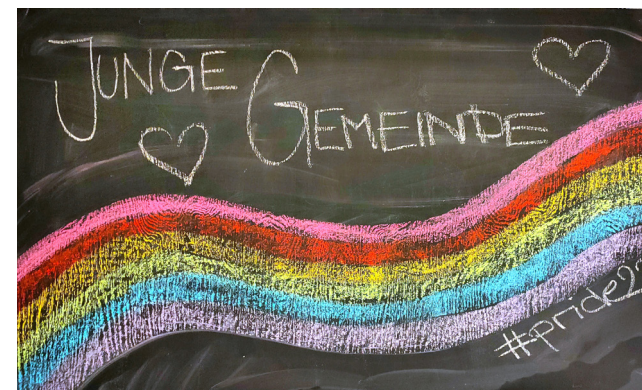 JUNGE
GEMEINDE
#pride2